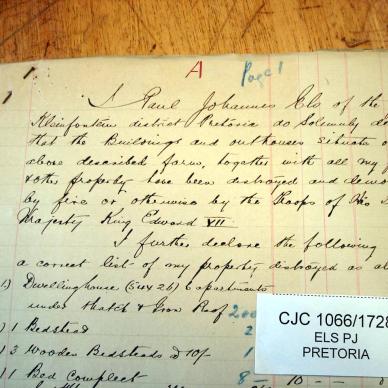 A Page 1
I Paul Johannes Els of the
Kleinfontein district Pretoria do Solemnly de
that the Buildings and outhouses situate o
above described farm, together with all my
& other property have been destroyed and
by fire or otherwise by the Troops of His
Majesty King Edward VII
I further declare the following
a correct list of my property destroyed as a
1) Dwelling house (50 x 26) 6 apartments
under thatch & Iron Roof 200
1 Bedstead 2
3 Wooden Bedsteads @ 10/- 1
1 Bed Compleet 8 - 10 -
CJC 1066/1728
ELS PJ
PRETORIA